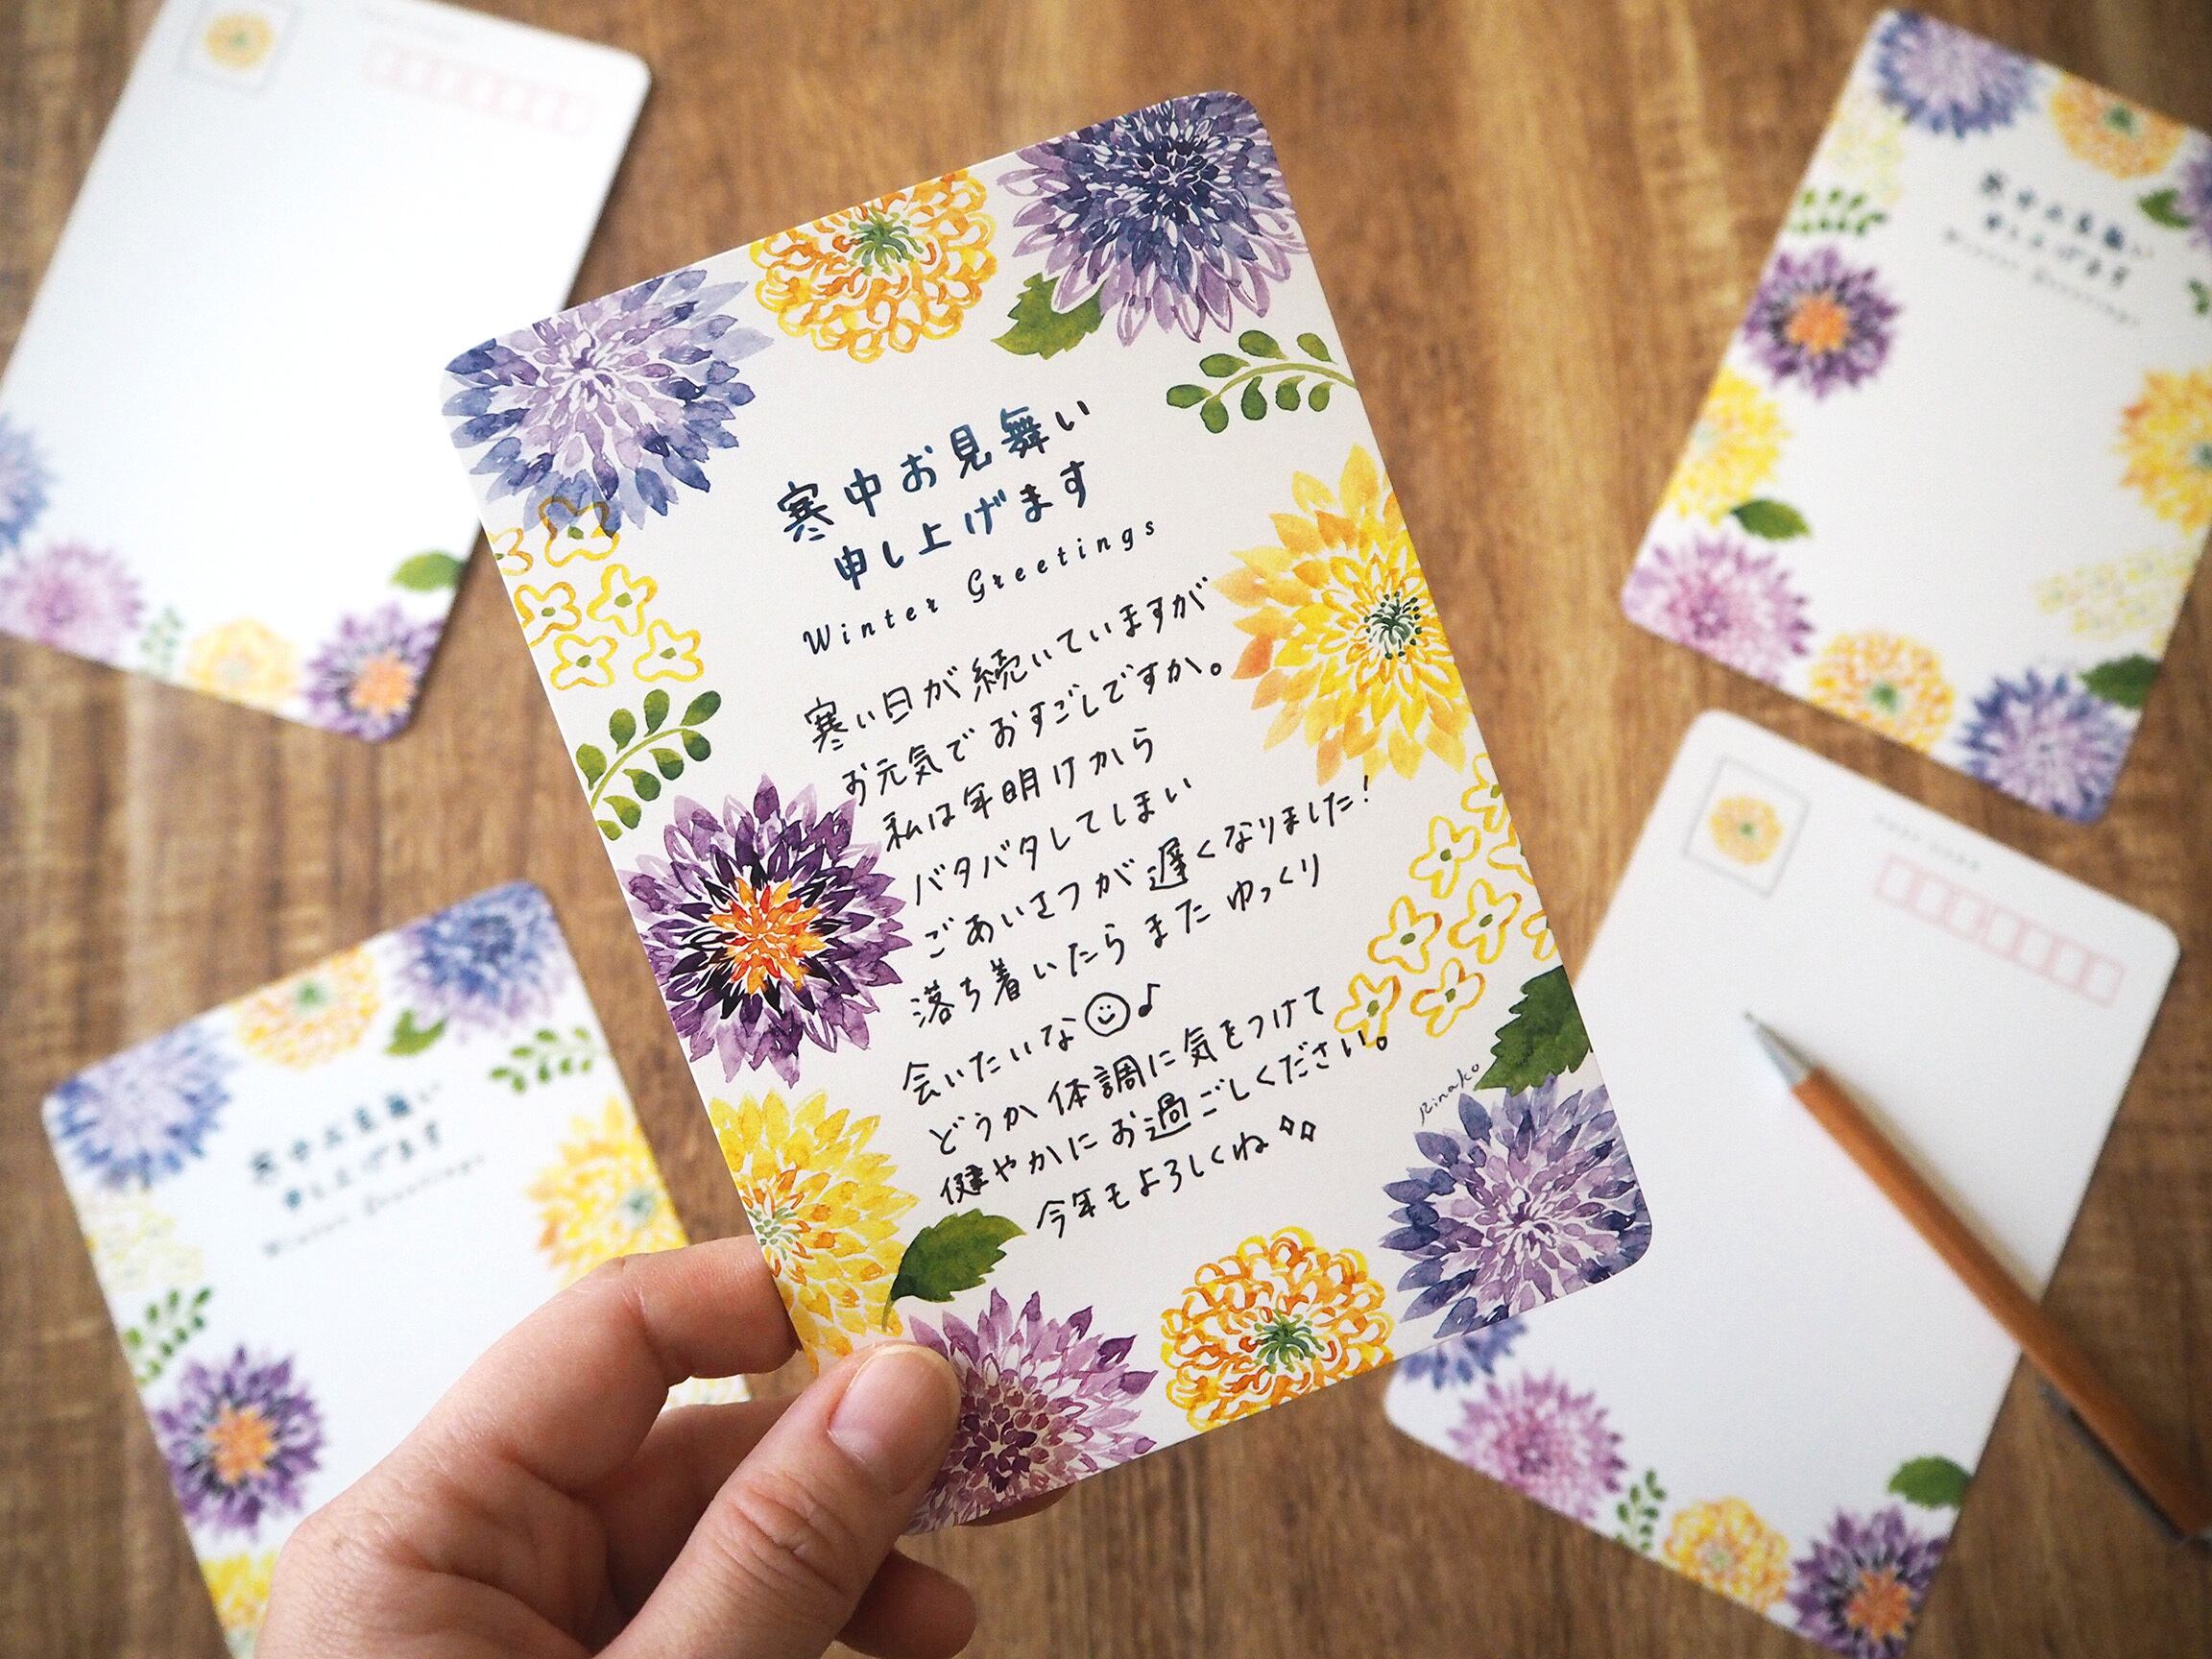 寒中お見舞い
申し上げます
Winter Greetings
寒い日が続いていますが
お元気でおすごしですか。
私は年明けから
バタバタしてしまい
ごあいさつが遅くなりました!
落ち着いたら また ゆっくり
会いたいな☺♪
どうか体調に気をつけて
健やかにお過ごしください。
今年もよろしくね
Rinako
寒中お見舞い
申し上げます
Winter Greetings
寒中お見舞い
申し上げます
Winter Greetings
POST CARD